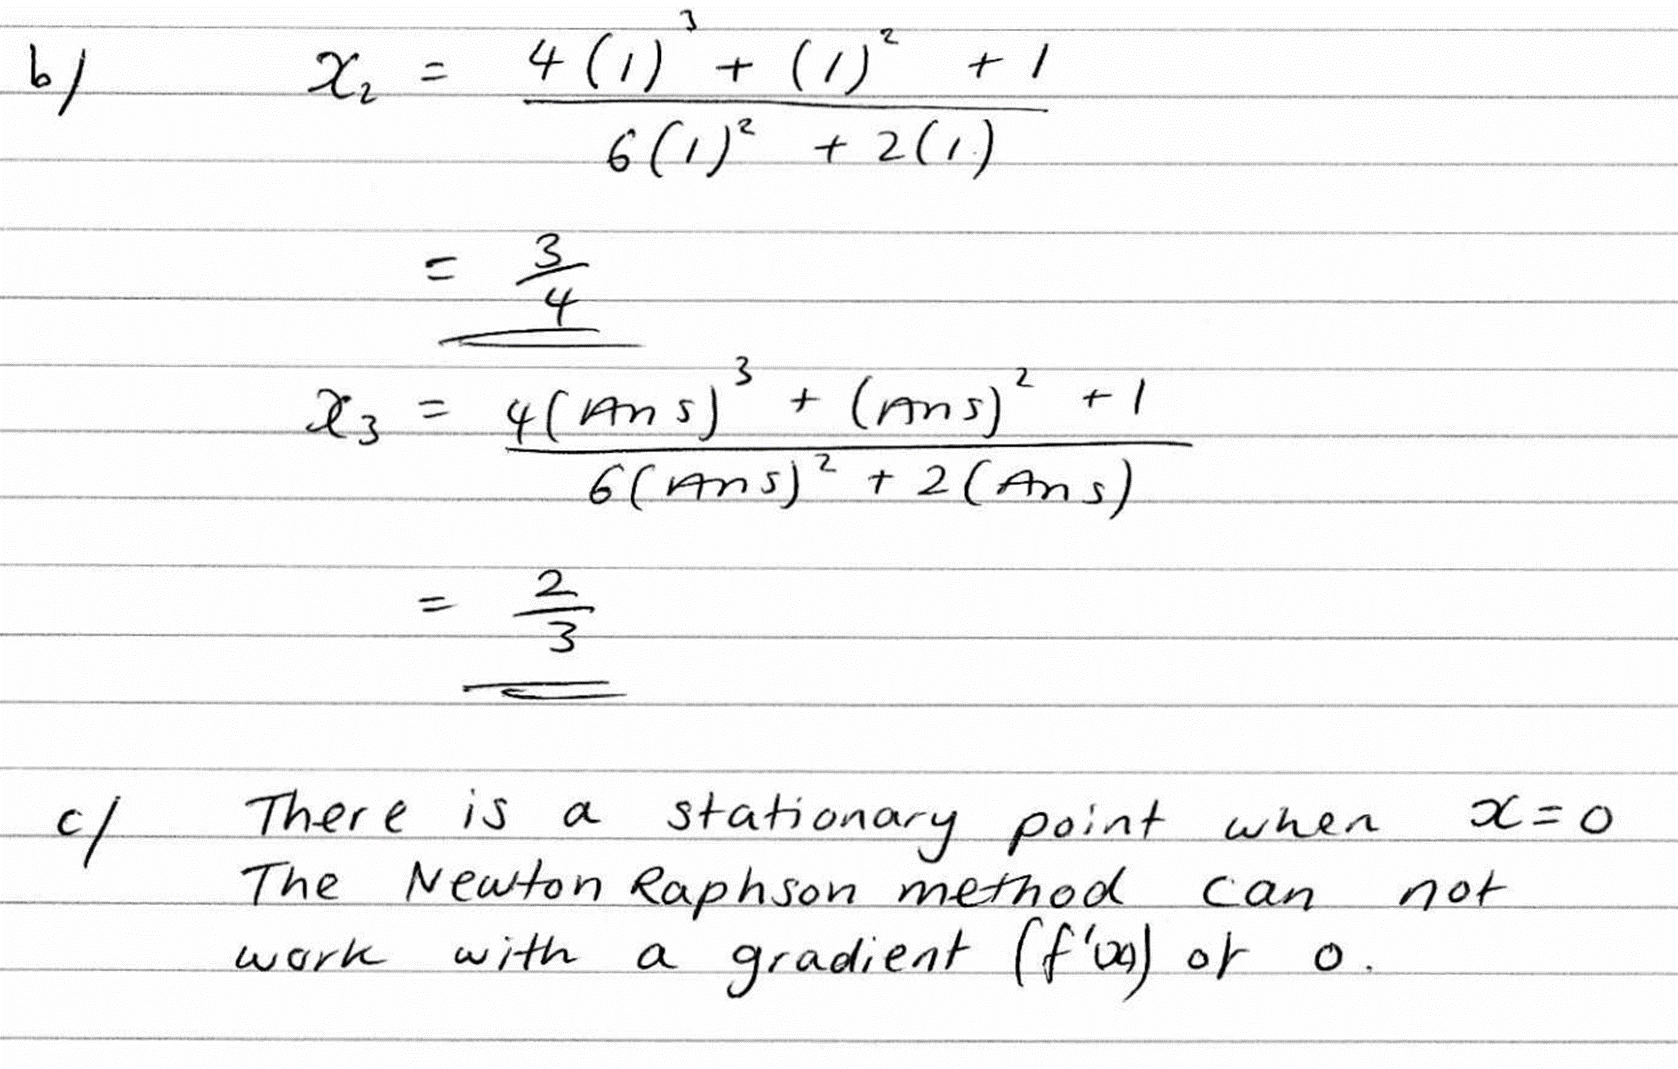 b/ x₂ = (4(1)³ + (1)² + 1) / (6(1)² + 2(1))
= 3/4
x₃ = (4(Ans)³ + (Ans)² + 1) / (6(Ans)² + 2(Ans))
= 2/3
c/ There is a stationary point when x=0
The Newton Raphson method can not
work with a gradient (f'(x)) of 0.